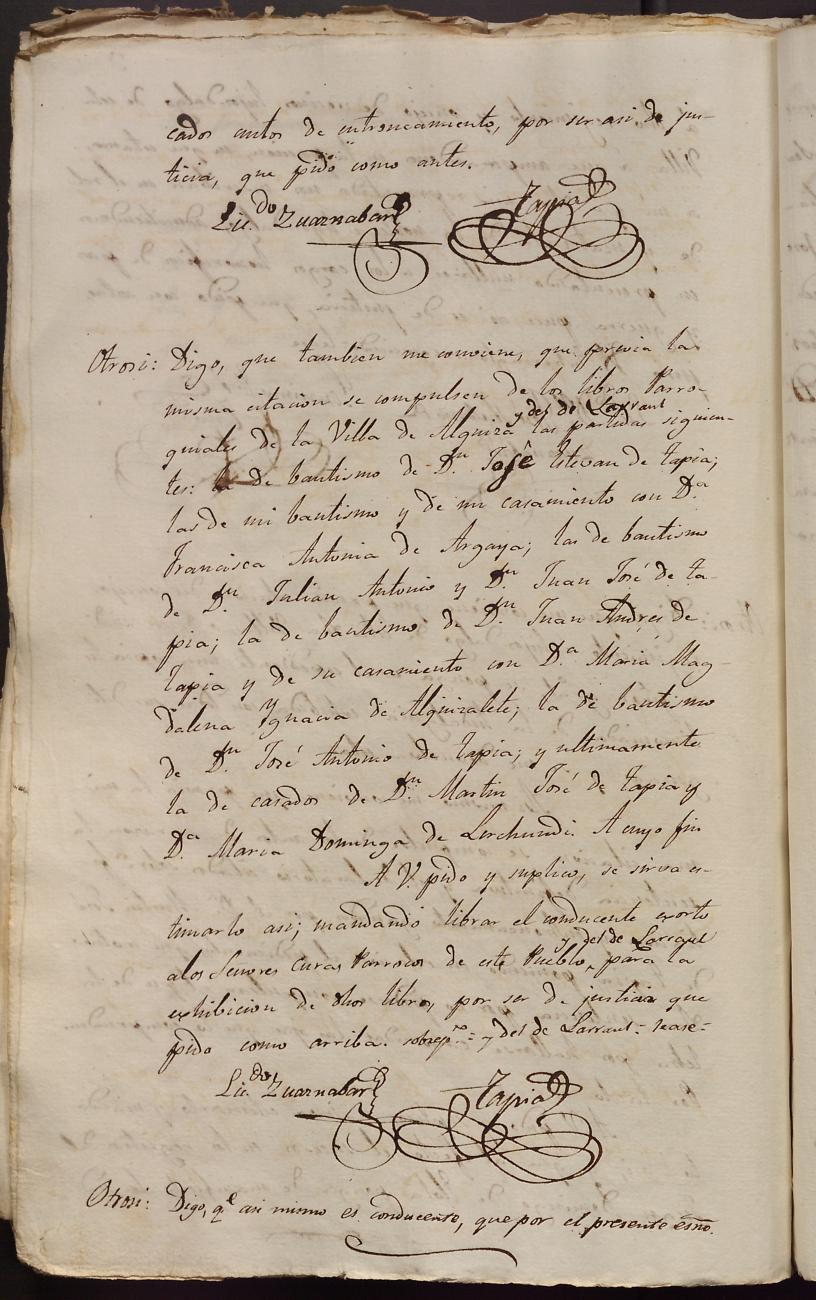 cados autos de entroncamiento, por ser asi de jus-
ticia, que pido como antes.
Lic.do Zuaznabar
Tapia
Otrosi: Digo, que tambien me conviene, que previa la
misma citacion se compulsen de los libros Parro-
y del de Larraul
quiales de la Villa de Alquiza las partidas siguien-
tes: la de bautismo de D.n José Estevan de Tapia;
las de mi bautismo y de mi casamiento con D.a
Francisca Antonia de Argaya; las de bautismo
de D.n Julian Antonio y D.n Juan José de Ta-
pia; la de bautismo de D.n Juan Andres de
Tapia y de su casamiento con D.a Maria Mag-
dalena Ygnacia de Alquizalete; la de bautismo
de D.n José Antonio de Tapia; y ultimamente
la de casados de D.n Martin José de Tapia y
D.a Maria Dominga de Lerchundi. A cuyo fin
A V. pido y suplico, se sirva es-
timarlo asi; mandando librar el conducente exorto
y del de Larraul
a los Señores Curas Parrocos de este Pueblo, para la
exhibicion de dhos libros, por ser de justicia que
pido como arriba. sobrep.to = y del de Larraul = vease =
Lic.do Zuaznabar
Tapia
Otrosi: Digo, q.e asi mismo es conducente, que por el presente esño.